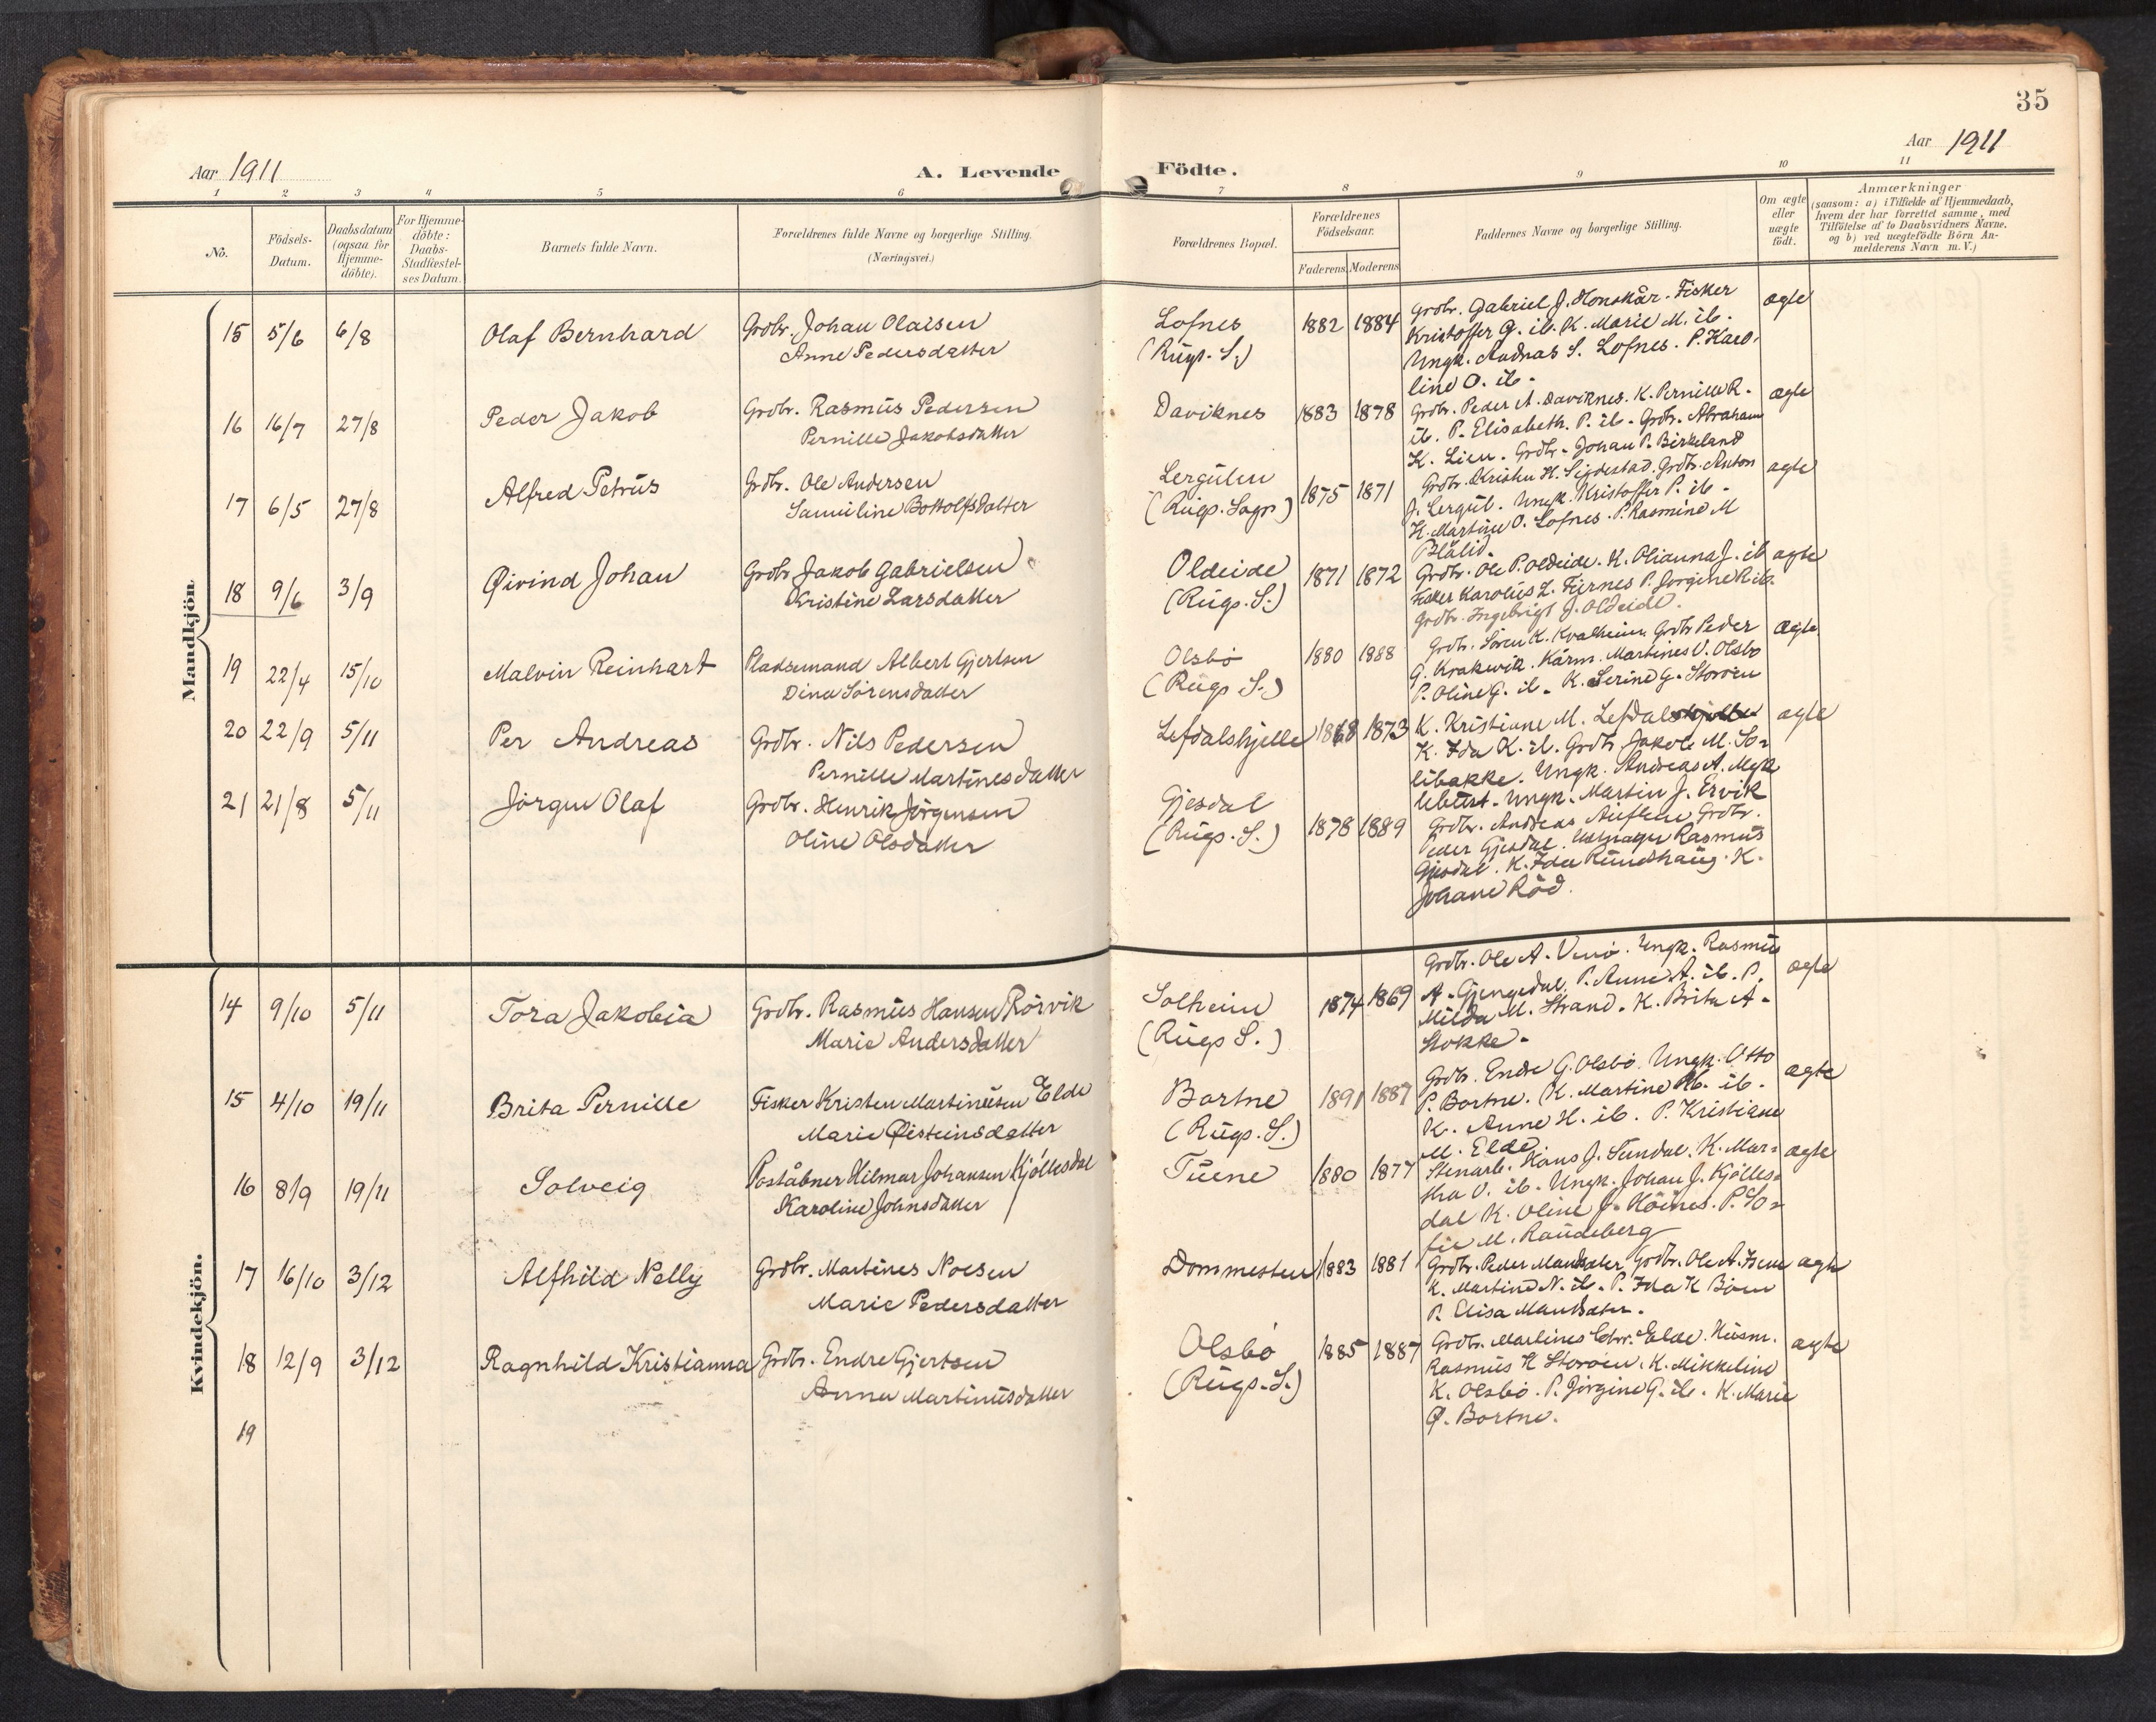 35
Aar 1911
A. Levende Födte.
Aar 1911
1 2 3 4 5 6 7 8 9 10 11
No.
Födsels-
Datum.
Daabsdatum
(ogsaa for
Hjemme-
döbte).
For Hjemme-
döbte:
Daabs-
Stadfæstel-
ses Datum.
Barnets fulde Navn.
Forældrenes fulde Navne og borgerlige Stilling.
(Næringsvei.)
Forældrenes Bopæl.
Forældrenes
Födselsaar.
Faderens. Moderens.
Faddernes Navne og borgerlige Stilling.
Om ægte
eller
uægte
födt.
Anmærkninger
(saasom: a) i Tilfælde af Hjemmedaab,
hvem der har forrettet samme, med
Tilföielse af to Daabsvidners Navne.
og b) ved uægtefödte Börn An-
melderens Navn m. V.)
Mandkjön
15 5/6 6/8 Olaf Bernhard
Grdbr. Johan Olaisen
Anne Pedersdatter
Lofnes
(Rugs. S.)
1882 1884
Grdbr. Gabriel J. Honskår. Fisker
Kristoffer G. ib. K. Marie M. ib.
Ungk. Andras S. Lofnes. P. Karo-
line O. ib.
ægte
16 16/7 27/8 Peder Jakob
Grdbr. Rasmus Pedersen
Pernille Jakobsdatter
Daviknes
1883 1878
Grdbr. Peder A. Daviknes. K. Pernille R.
ib. P. Elisabeth. P. ib. Grdbr. Abraham
K. Lien. Grdbr. Johan P. Birkeland
ægte
17 6/5 27/8 Alfred Petrus
Grdbr. Ole Andersen
Samuline Bottolfsdatter
Lergulen
(Rugs. Sogn)
1875 1871
Grdbr. Kristen H. Sigdestad. Grdbr. Anton
J. Lergul. Ungk. Kristoffer P. ib.
K. Martine O. Lofnes. P. Rasmine M
Blålid.
ægte
18 9/6 3/9 Øivind Johan
Grdbr. Jakob Gabrielsen
Kristine Larsdatter
Oldeide
(Rugs. S.)
1871 1872
Grdbr. Ole P. Oldeide. K. Olianna J. ib
Fisker Karolus L. P. Jorgine R. ib.
Grdbr. Ingebrigt J. Oldeide.
ægte
19 22/4 15/10 Malvin Reinhart
Pladsemand Albert Gjertsen
Dina Sörensdatter
Olsbö
(Rugs S.)
1880 1888
Grdbr. Sören K. Kvalheim. Grdbr Peder
G. Krakevik. Kårm. Martines V. Olsbö
P. Oline G. ib. K. Serine G. Storöen
ægte
20 22/9 5/11 Per Andreas
Grdbr. Nils Pedersen
Pernille Martinesdatter
Lefdalshjelle
1868 1873
K. Kristiane M. Lefdal
K. Ida K. ib. Grdbr. Jakob M. So-
libakke. Ungk. Andreas A. Mykl
lebust. Ungk. Martin J. Ervik
ægte
21 21/8 5/11 Jörgen Olaf
Grdbr. Henrik Jörgensen
Oline Olsdatter
Gjesdal
(Rugs. S.)
1878 1889
Grdbr. Andreas Aüflem Grdbr.
Peder Gjesdal. Rasmus
Gjesdal. K. Ida Rundhaug. K.
Johane Röd.
Kvindekjön.
14 9/10 5/11 Tora Jakobia
Grdbr. Rasmus Hansen Rörvik
Marie Andersdatter
Solheim
(Rugs S.)
1874 1869
Grdbr. Ole A. Venö. Ungk. Rasmus
A. Gjengedal. P. Anne A. ib. P.
Milda M. Strand. K. Brita A.
Stokke.
ægte
15 4/10 19/11 Brita Pernille
Fisker Kristen Martinusen Elde
Marie Øisteinsdatter
Bortne
(Rugs. S.)
1891 1887
Grdbr. Endre G. Olsbö. Ungk. Otto
P. Bortne. K. Martine ib.
K. Anne H. ib. P. Kristiane
M. Elde.
ægte
16 8/9 19/11 Solveig
Poståbner Hilmar Johansen Kjöllesdal
Karoline Johnsdatter
Tuene
1880 1877
Stenarb. Hans J. Sundal. K. Mar-
tha V. ib. Ungk. Johan J. Kjölles-
dal K. Oline J. Höines. P. So-
fie M. Raudeberg
ægte
17 16/10 3/12 Alfhild Nelly
Grdbr. Martines Noesen
Marie Pedersdatter
Dommesten
1883 1881
Grdbr. Peder Maurstad Grdbr. Ole A. Isene
K. Martine N. ib. P. Ida K Böen
P. Elisa
ægte
18 12/9 3/12 Ragnhild Kristianna
Grdbr. Endre Gjertsen
Anna Martinusdatter
Olsbö
(Rugs. S.)
1885 1887
Grdbr. Martines Chr. Elde. Husm.
Rasmus K Storöen. K. Mikkeline
K. Olsbö. P. Jörgine G. ib. K. Marie
Ø. Bortne.
ægte
19